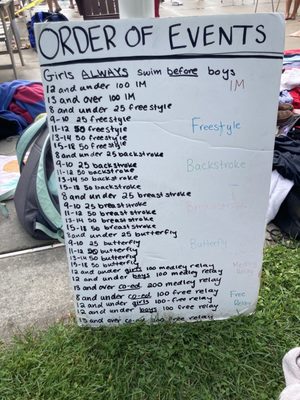 ORDER OF EVENTS
Girls ALWAYS swim before boys
12 and under 100 IM
13 and over 100 IM
IM
8 and under 25 freestyle
9-10 25 freestyle
11-12 50 freestyle
13-14 50 freestyle
15-18 50 freestyle
Freestyle
8 and under 25 backstroke
9-10 25 backstroke
11-12 50 backstroke
13-14 50 backstroke
15-18 50 backstroke
Backstroke
8 and under 25 breast stroke
9-10 25 breast stroke
11-12 50 breast stroke
13-14 50 breast stroke
15-18 50 breast stroke
Breaststroke
8 and under 25 butterfly
9-10 25 butterfly
11-12 50 butterfly
13-14 50 butterfly
15-18 50 butterfly
Butterfly
12 and under girls 100 medley relay
12 and under boys 100 medley relay
13 and over co-ed 200 medley relay
Medley
Relay
8 and under co-ed 100 free relay
12 and under girls 100 free relay
12 and under boys 100 free relay
13 and over co-ed 200 free relay
Free
Relay